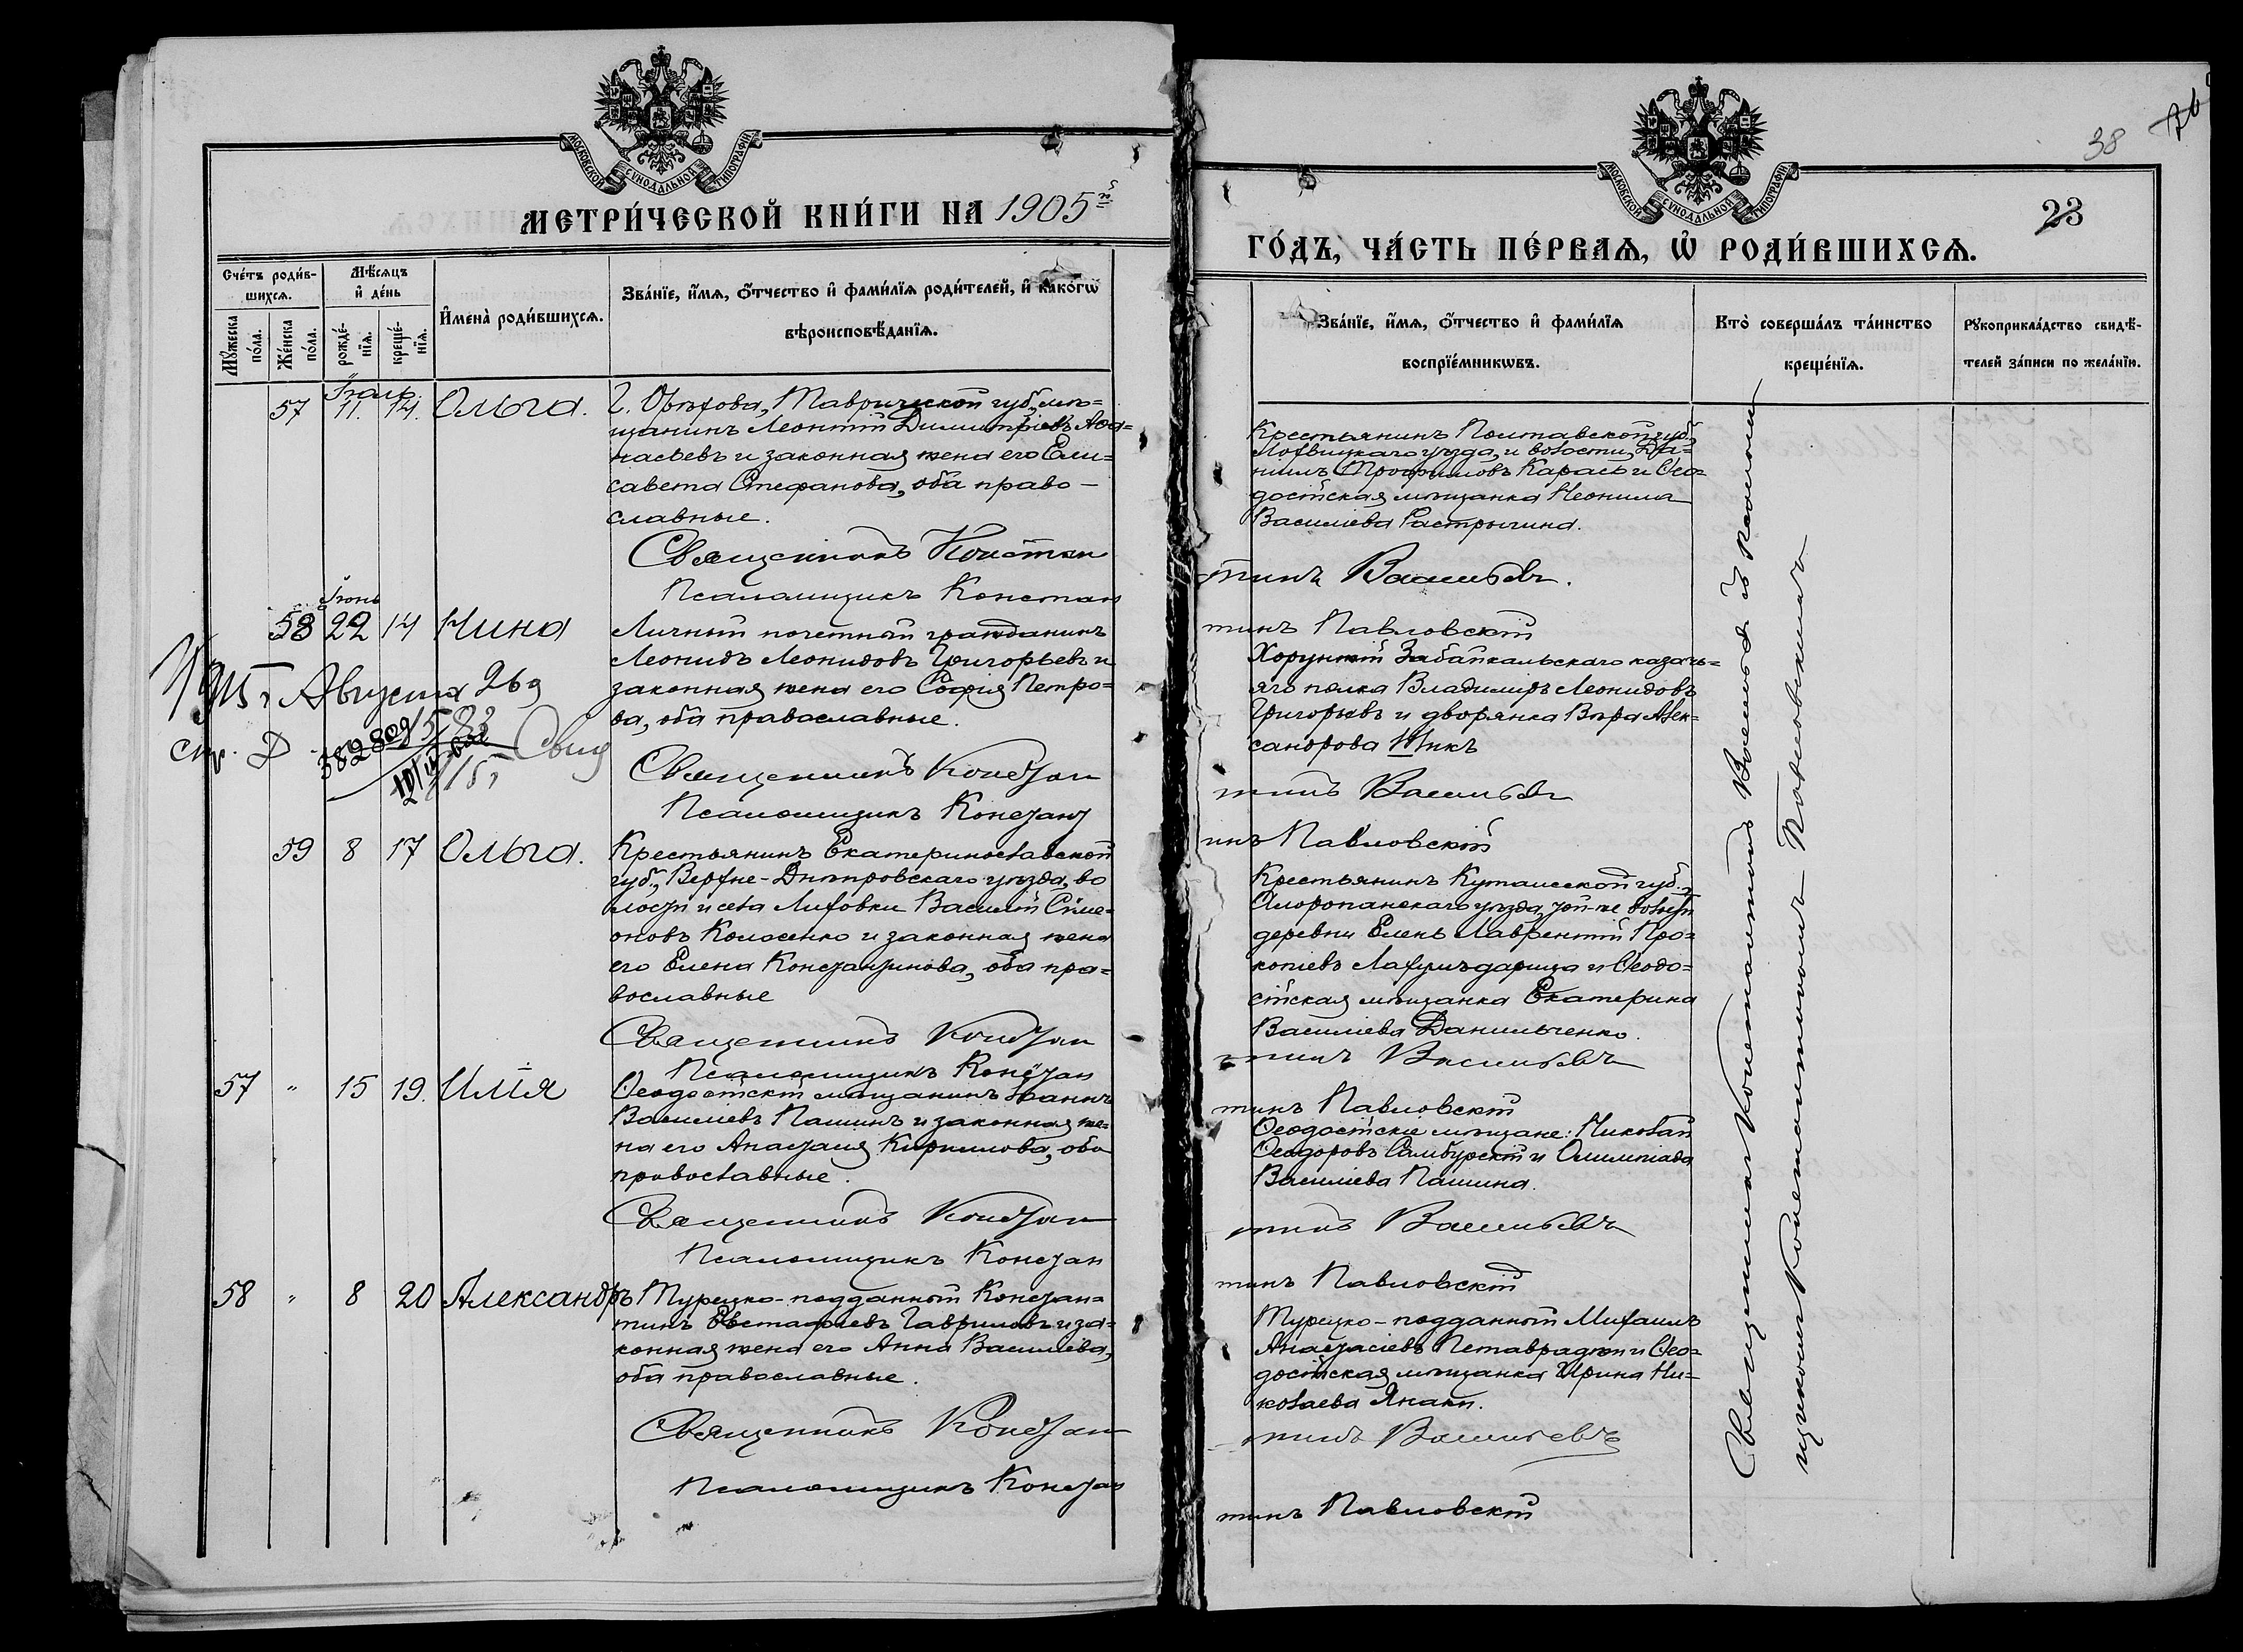 МОСКОВСКОЙ СѴНОДАЛЬНОЙ ТИПОГРАФІИ
МЕТРИ́ЧЕСКОЙ КНИ́ГИ НА 1905й
Сче́тъ роди́в-
шихсѧ.
Мꙋ́жеска
по́ла.
Же́нска
по́ла.
Мѣ́сѧцъ
и҆ де́нь
рожде́-
нїѧ.
креще́-
нїѧ.
И҆мена̀ роди́вшихсѧ.
Зва́нїе, и҆́мѧ, ѻ҆́тчество и҆ фами́лїѧ роди́телей, и҆ како́гѡ
вѣроисповѣ́данїѧ.
57 Іюль 11. 14. Ольга.
Г. Орѣхова, Таврической губ., мѣ=
щанинъ Леонтій Димитріевъ Аѳа=
насьевъ и законная жена его Ели=
савета Стефанова, оба право-
славные.
Священникъ Констан
Псаломщикъ Констан
58 Іюнь 22 14 Нина
Личный почетный гражданинъ
Леонидъ Леонидовъ Григорьевъ и
законная жена его Софія Петро=
ва, оба православные.
Священникъ Констан
Псаломщикъ Констант
Августа 26
59 8 17 Ольга.
Крестьянинъ Екатеринославской
губ., Верхне-Днѣпровскаго уѣзда, во
лости и села Лиховки Василій Сѵме=
оновъ Колосенко и законная жена
его Елена Константинова, оба пра=
вославные
Священникъ Констан
Псаломщикъ Констан
57 " 15 19. Илія
Ѳеодосійскій мѣщанинъ Іоаннъ
Василіевъ Пашинъ и законная же=
на его Анастасія Кириллова, оба
православные.
Священникъ Констан
Псаломщикъ Констан
58 " 8 20 Александръ
Турецко-подданный Констан=
тинъ Евстафіевъ Гавриловъ и за=
конная жена его Анна Василіева,
оба православные.
Священникъ Констан
Псаломщикъ Констан
38
23
МОСКОВСКОЙ СѴНОДАЛЬНОЙ ТИПОГРАФІИ
ГО́ДЪ, ЧА́СТЬ ПЕ́РВАѦ, Ѡ҆ РОДИ́ВШИХСѦ.
Зва́нїе, и҆́мѧ, ѻ҆́тчество и҆ фами́лїѧ
воспрїе́мникѡвъ.
Кто̀ соверша́лъ та́инство
креще́нїѧ.
Рꙋкоприкла́дство свидѣ́-
телей за́писи по жела́нїю.
Крестьянинъ Полтавской губ.,
Лохвицкаго уѣзда, и волости, Да=
ніилъ Трофимовъ Карась и Ѳео=
досійская мѣщанка Неонила
Василіева Растрыгина.
тинъ Васильевъ.
тинъ Павловскій
Хорунжій Забайкальскаго казачь=
яго полка Владиміръ Леонидовъ
Григорьевъ и дворянка Вѣра Алек=
сандрова
тинъ Васильевъ
инъ Павловскій
Крестьянинъ Кутаисской губ.,
Шоропанскаго уѣзда, той-же волости
деревни Лаврентій Про=
копіевъ и Ѳеодо=
сійская мѣщанка Екатерина
Василіева Данильченко.
тинъ Васильевъ
тинъ Павловскій
Ѳеодосійскіе мѣщане: Николай
Ѳеодоровъ Самбурскій и Олимпіада
Василіева Пашина.
тинъ Васильевъ
тинъ Павловскій
Турецко-подданный Михаилъ
Анастасіевъ и Ѳео=
досійская мѣщанка Ирина Ни=
колаева
тинъ Васильевъ
тинъ Павловскій
Священникъ Константинъ Васильевъ съ псалом-
щикомъ Константиномъ Павловскимъ